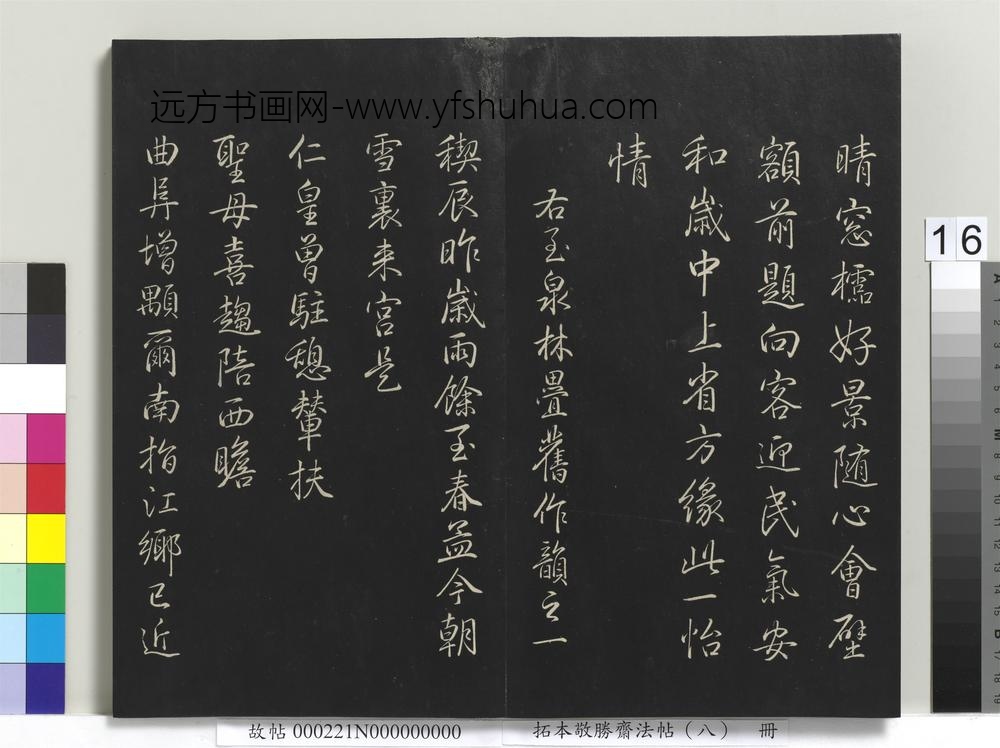 远方书画网-www.yfshuhua.com
晴窓檽好景随心會壁
額前題向客迎民氣安
和歲中上省方緣此一怡
情
右至泉林疊舊作韻之一
稧辰昨歲雨餘至春孟今朝
雪裏来宮是
仁皇曾駐憩輦扶
聖母喜趨陪西瞻
曲阜增顒爾南指江鄉已近
16
故帖 000221N000000000
拓本敬勝齋法帖（八） 冊